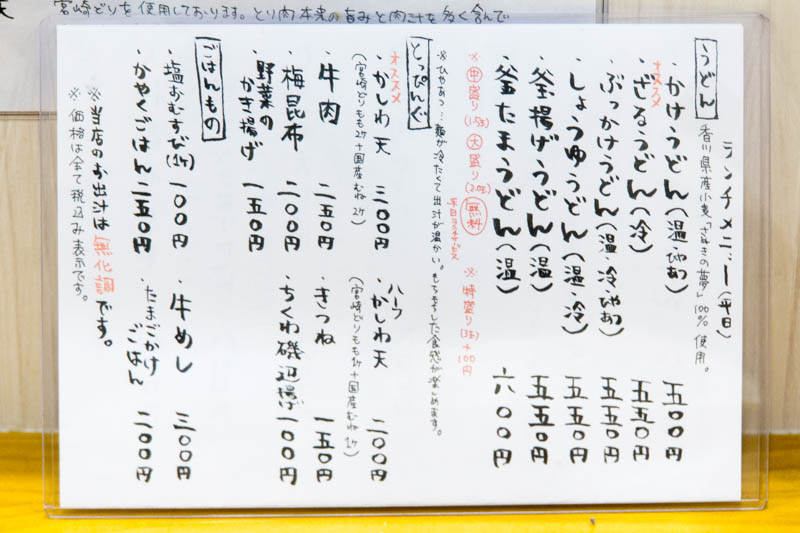 宮崎どりを使用しております。とり肉本来の旨みと肉汁を多く含んで
天
ランチメニュー(平日)
うどん
香川県産小麦「さぬきの夢」100%使用。
・かけうどん(温・ひやあつ) 五00円
オススメ
・ざるうどん(冷) 五五0円
・ぶっかけうどん(温・冷・ひやあつ) 五五0円
・しょうゆうどん(温・冷) 五五0円
・釜揚げうどん(温) 五五0円
・釜たまうどん(温) 六00円
※中盛り(1.5玉) 大盛り(2.0玉) 無料 ※特盛り(3玉)+100円
平日ランチサービス
※ひやあつ…麺が冷たくて出汁が温かい。もちもちした食感が楽しめます。
とっぴんぐ
オススメ
・かしわ天 三00円
(宮崎どりもも2ケ+国産むね2ケ)
・ハーフかしわ天 二00円
(宮崎どりもも1ケ+国産むね1ケ)
・牛肉 二五0円
・きつね 一五0円
・梅昆布 二00円
・ちくわ磯辺揚げ 一00円
・野菜のかき揚げ 一五0円
ごはんもの
・塩おむすび(1ケ) 一00円
・牛めし 三00円
・かやくごはん 二五0円
・たまごかけごはん 二00円
※当店のお出汁は無化調です。
※価格は全て税込み表示です。